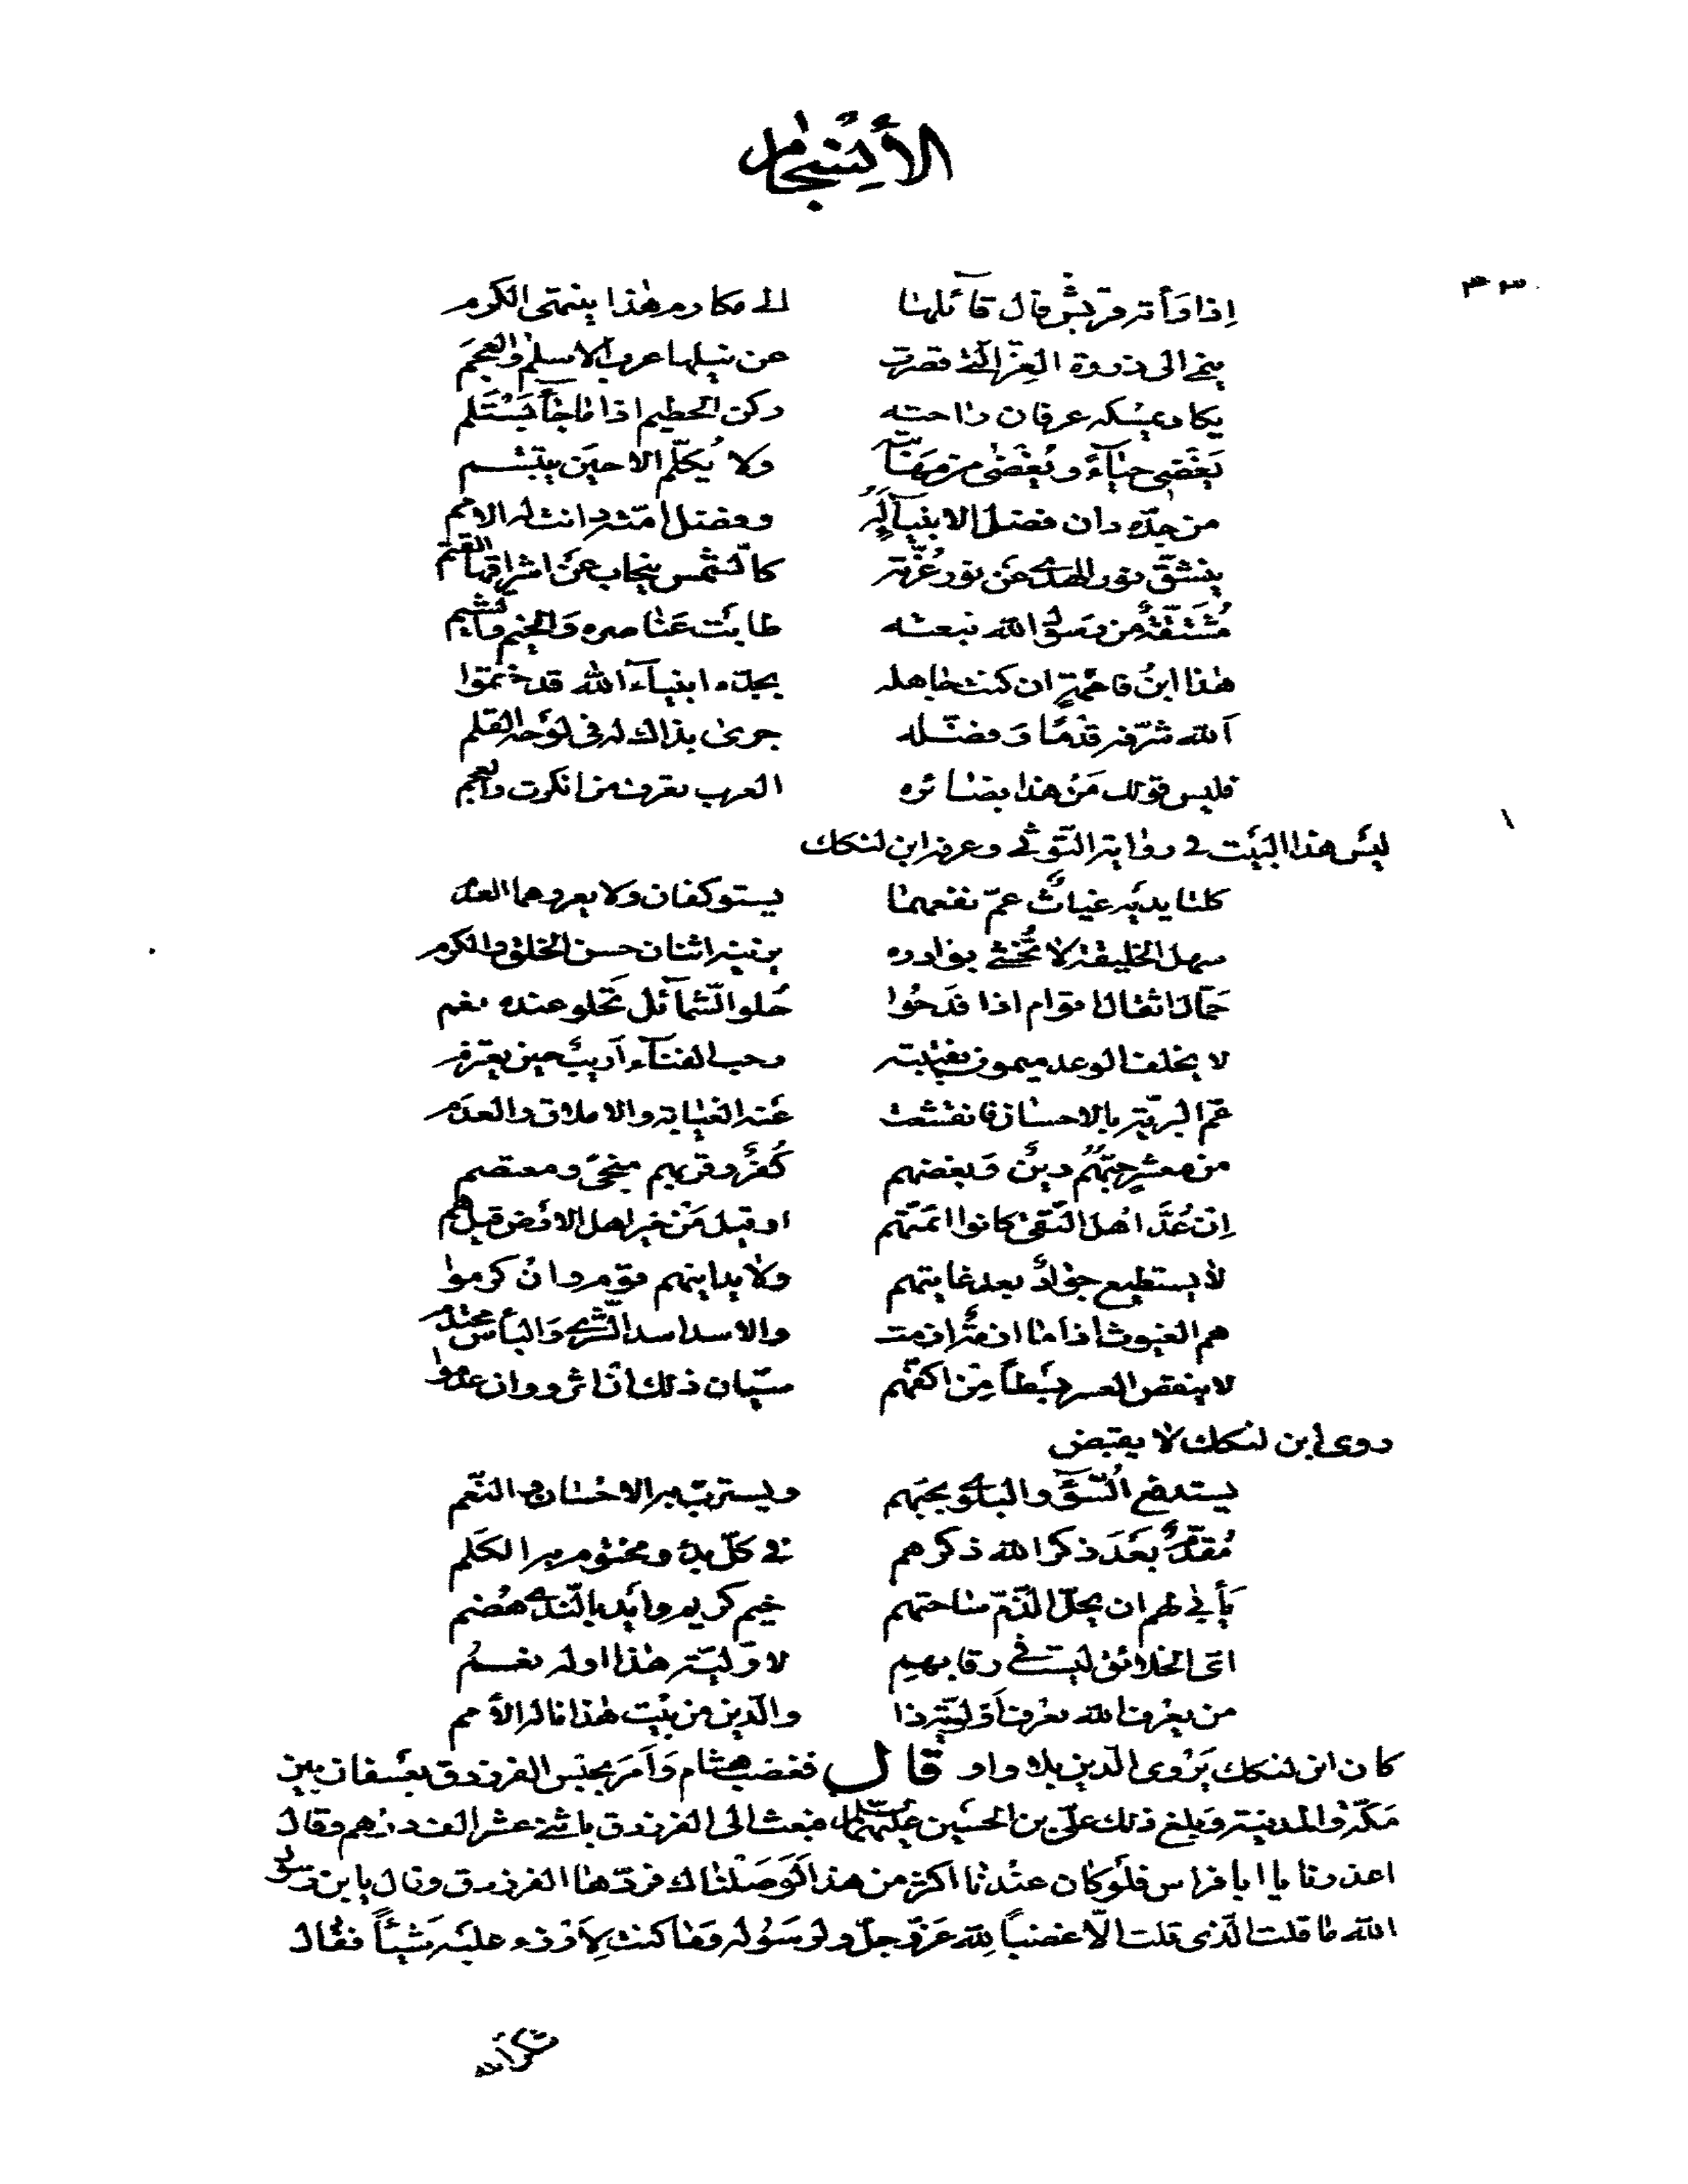 الأنسجام
٣٣
إذا رأته قريش قال قائلها الى مكارم هذا ينتمى الكرم
ينمى الى ذروة العز التى قصرت عن نيلها عرب الاسلام والعجم
يكاد يمسكه عرفان راحته ركن الحطيم اذا ما جآء يستلم
يغضى حيآءً ويغضى من مهابته ولا يكلّم الا حين يبتسم
من جدّه دان فضل الانبيآء له وفضل امّته دانت له الامم
ينشقّ نور الهدى عن نور غرّته كالشمس ينجاب عن اشراقها القتم
مشتقّة من رسول الله نبعته طابت عناصره والخيم والشيم
هذا ابن فاطمةٍ ان كنت جاهله بجدّه انبيآء الله قد ختموا
الله شرّفه قدمًا وفضّله جرى بذاك له فى لوحه القلم
فليس قولك من هذا بضائره العرب تعرف من انكرت والعجم
ليس هذا البيت فى رواية التوّثى وعرفه ابن لنكك
كلتا يديه غياث عمّ نفعهما يستوكفان ولا يعروهما العدم
سهل الخليقة لا تخشى بوادره يزينه اثنان حسن الخلق والكرم
حمّال اثقال اقوام اذا فدحوا حلو الشمآئل تحلو عنده نعم
لا يخلف الوعد ميمون نقيبته رحب الفنآء أريب حين يعتزم
عمّ البريّة بالاحسان فانقشعت عنه الغيابة والاملاق والعدم
من معشرٍ حبّهم دين وبغضهم كفر وقربهم منجىً ومعتصم
إن عدّ اهل التقى كانوا ائمّتهم او قيل من خير اهل الارض قيل هم
لا يستطيع جواد بعد غايتهم ولا يدانيهم قوم وان كرموا
هم الغيوث اذا ما ازمة ازمت والاسد اسد الشرى والبأس محتدم
لا ينقص العسر بسطاً من اكفّهم سيّان ذلك ان اثروا وان عدموا
روى ابن لنكك لا يقبض
يستدفع السوء والبلوى بحبّهم ويستربّ به الاحسان والنعم
مقدّم بعد ذكر الله ذكرهم فى كلّ بدء ومختوم به الكلم
يأبى لهم ان يحلّ الذمّ ساحتهم خيم كريم وايد بالندى هضم
اىّ الخلائق ليست فى رقابهم لاوّليّة هذا او له نعم
من يعرف الله يعرف اوّليّة ذا والدين من بيت هذا ناله الأمم
كان ابن لنكك يروى الدين بلا واو قال فغضب هشام وأمر بحبس الفرزدق بعسفان بين
مكّة والمدينة وبلغ ذلك علىّ بن الحسين عليهما السلام فبعث الى الفرزدق باثنى عشر الف درهم وقال
اعذرنا يا ابا فراس فلو كان عندنا اكثر من هذا لوصلناك فردّها الفرزدق وقال يا بن رسول
الله ما قلت الذى قلت الّا غضباً لله عزّ وجلّ ولرسوله وما كنت لأرزء عليه شيئاً فقال
شكر الله